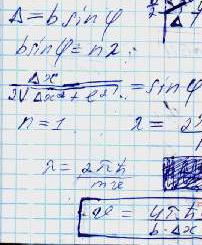 Δ = b sin φ
b sin φ = nλ
Δx / 2√Δx² + ℓ² = sin φ
n = 1 λ = 2
λ = 2πħ / mv
= 4πħ / b·Δx